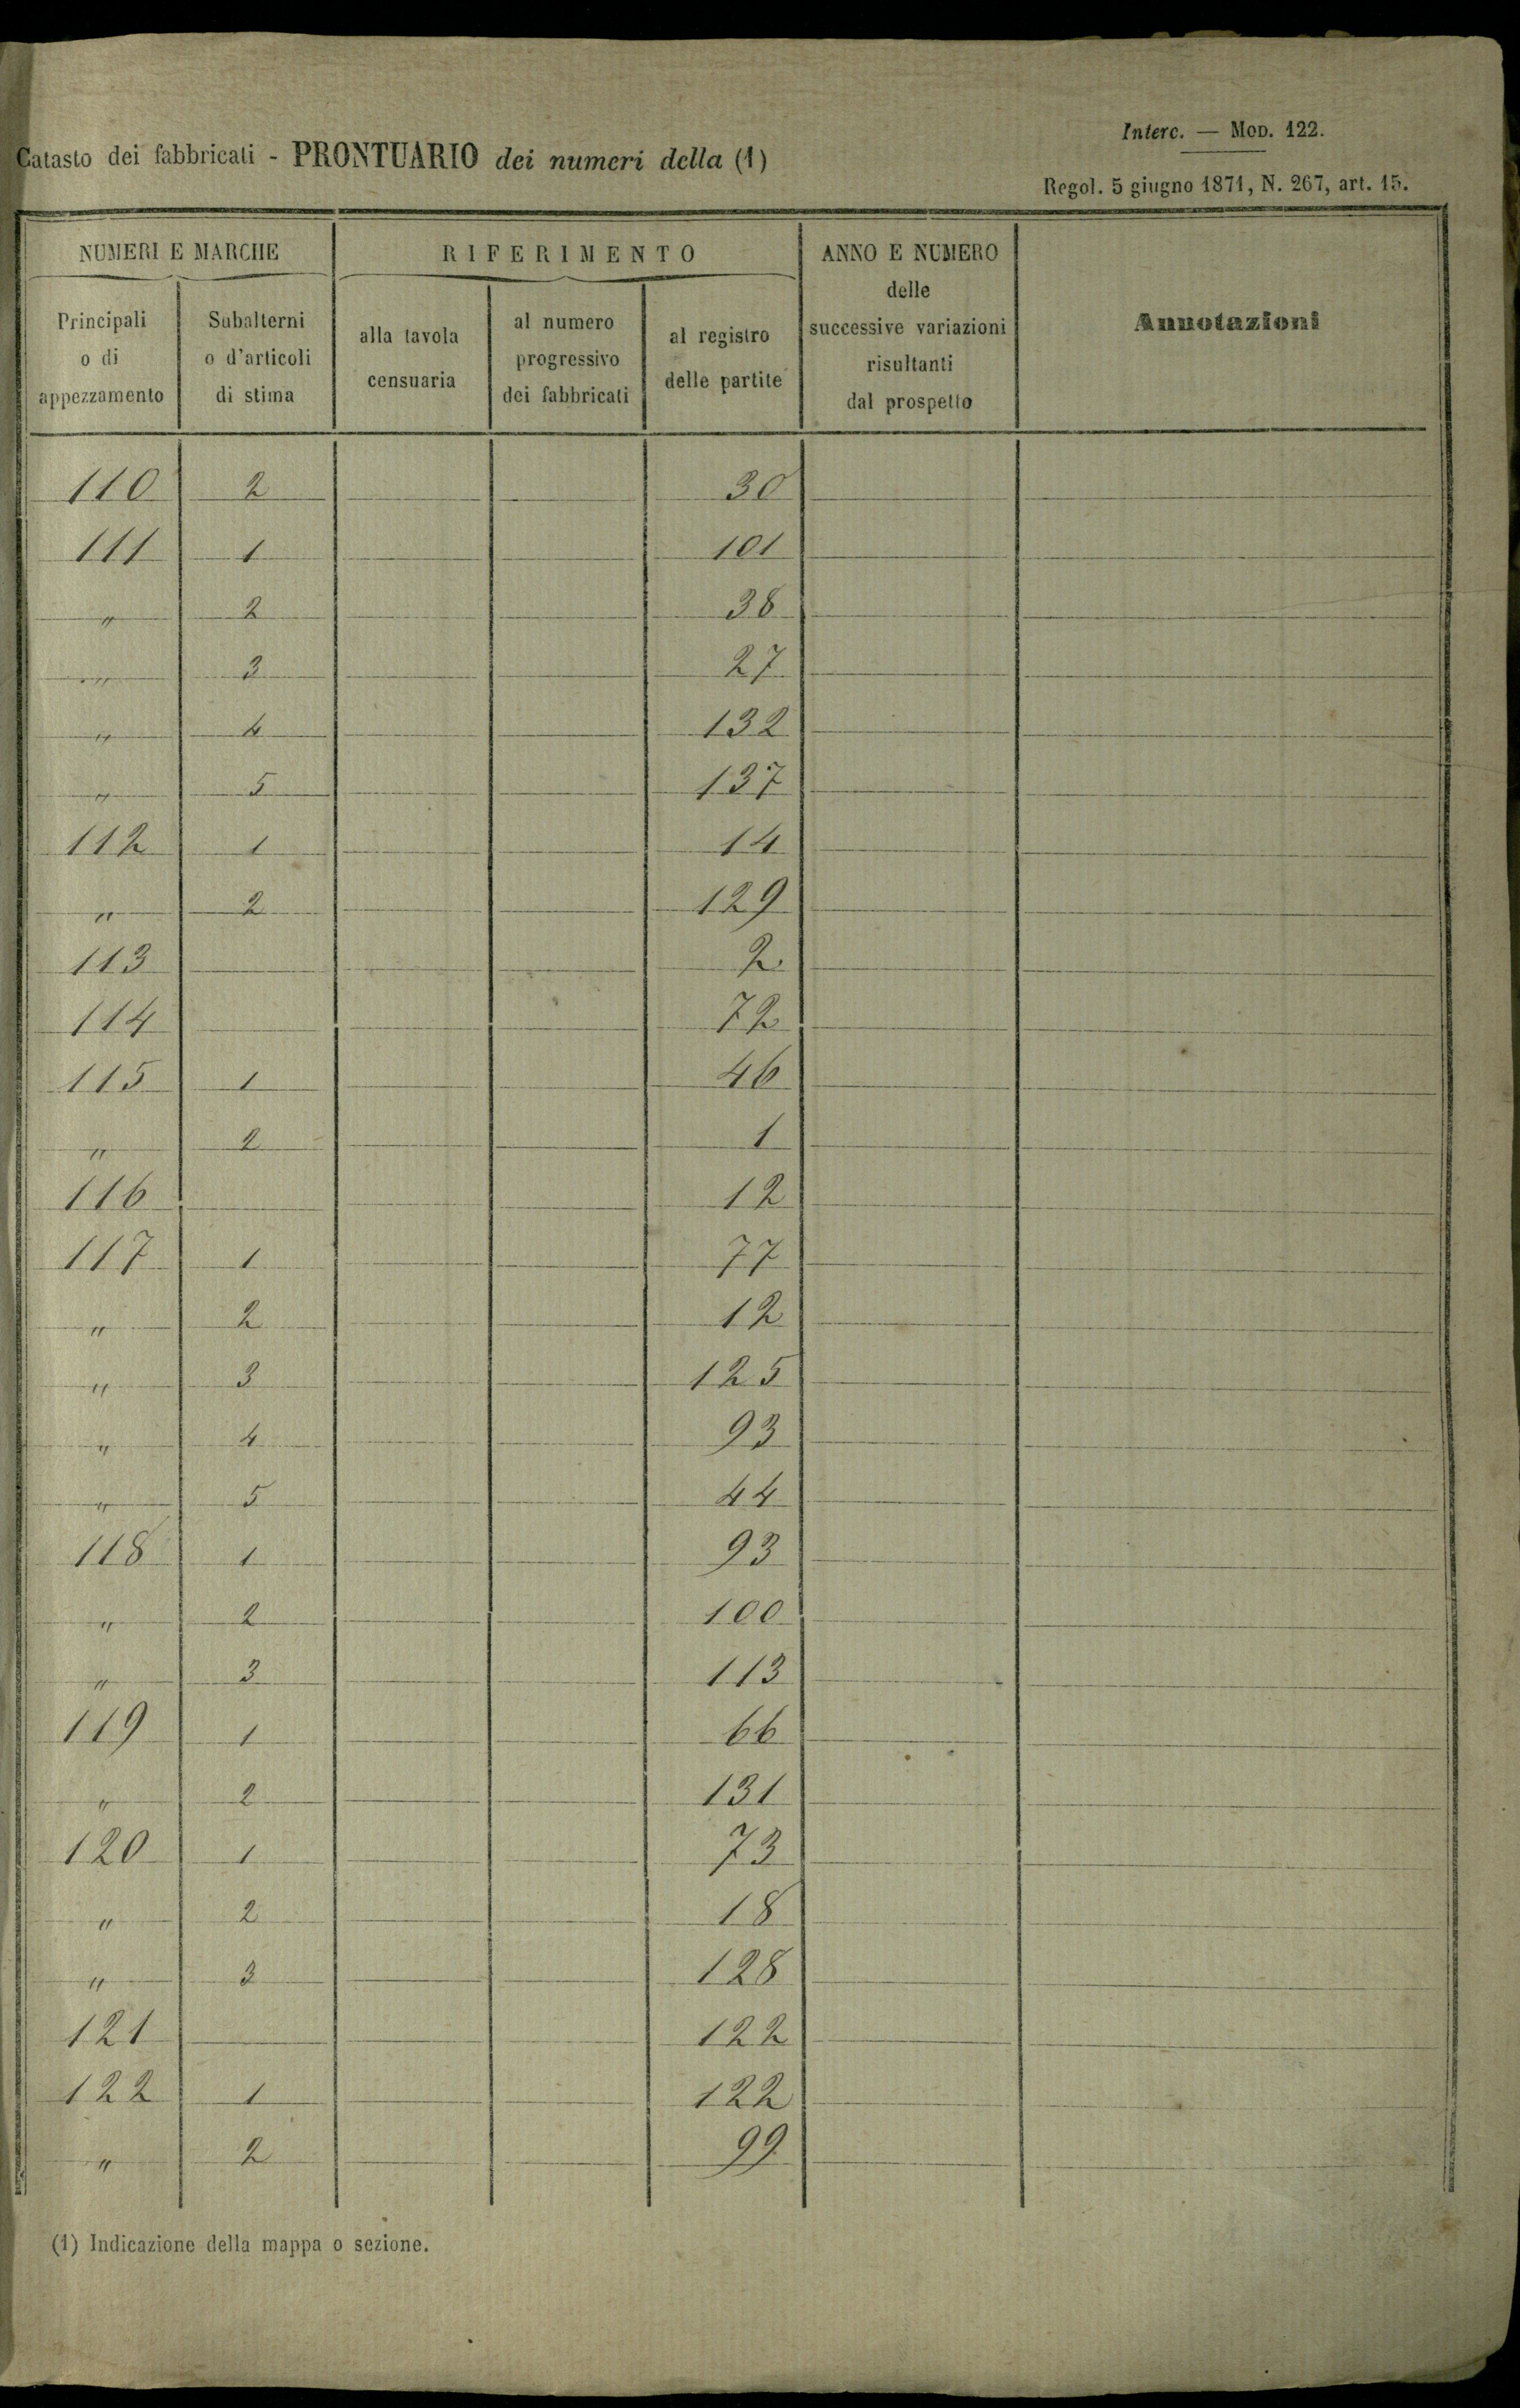 Interc. — Mod. 122.
Catasto dei fabbricati - PRONTUARIO dei numeri della (1)
Regol. 5 giugno 1871, N. 267, art. 15.
NUMERI E MARCHE RIFERIMENTO ANNO E NUMERO delle successive variazioni risultanti dal prospetto Annotazioni
Principali o di appezzamento Subalterni o d'articoli di stima alla tavola censuaria al numero progressivo dei fabbricati al registro delle partite
110 2 30
111 1 101
" 2 38
" 3 27
" 4 132
" 5 137
112 1 14
" 2 129
113 2
114 72
115 1 46
" 2 1
116 12
117 1 77
" 2 12
" 3 125
" 4 93
" 5 44
118 1 93
" 2 100
" 3 113
119 1 66
" 2 131
120 1 73
" 2 18
" 3 128
121 122
122 1 122
" 2 99
(1) Indicazione della mappa o sezione.